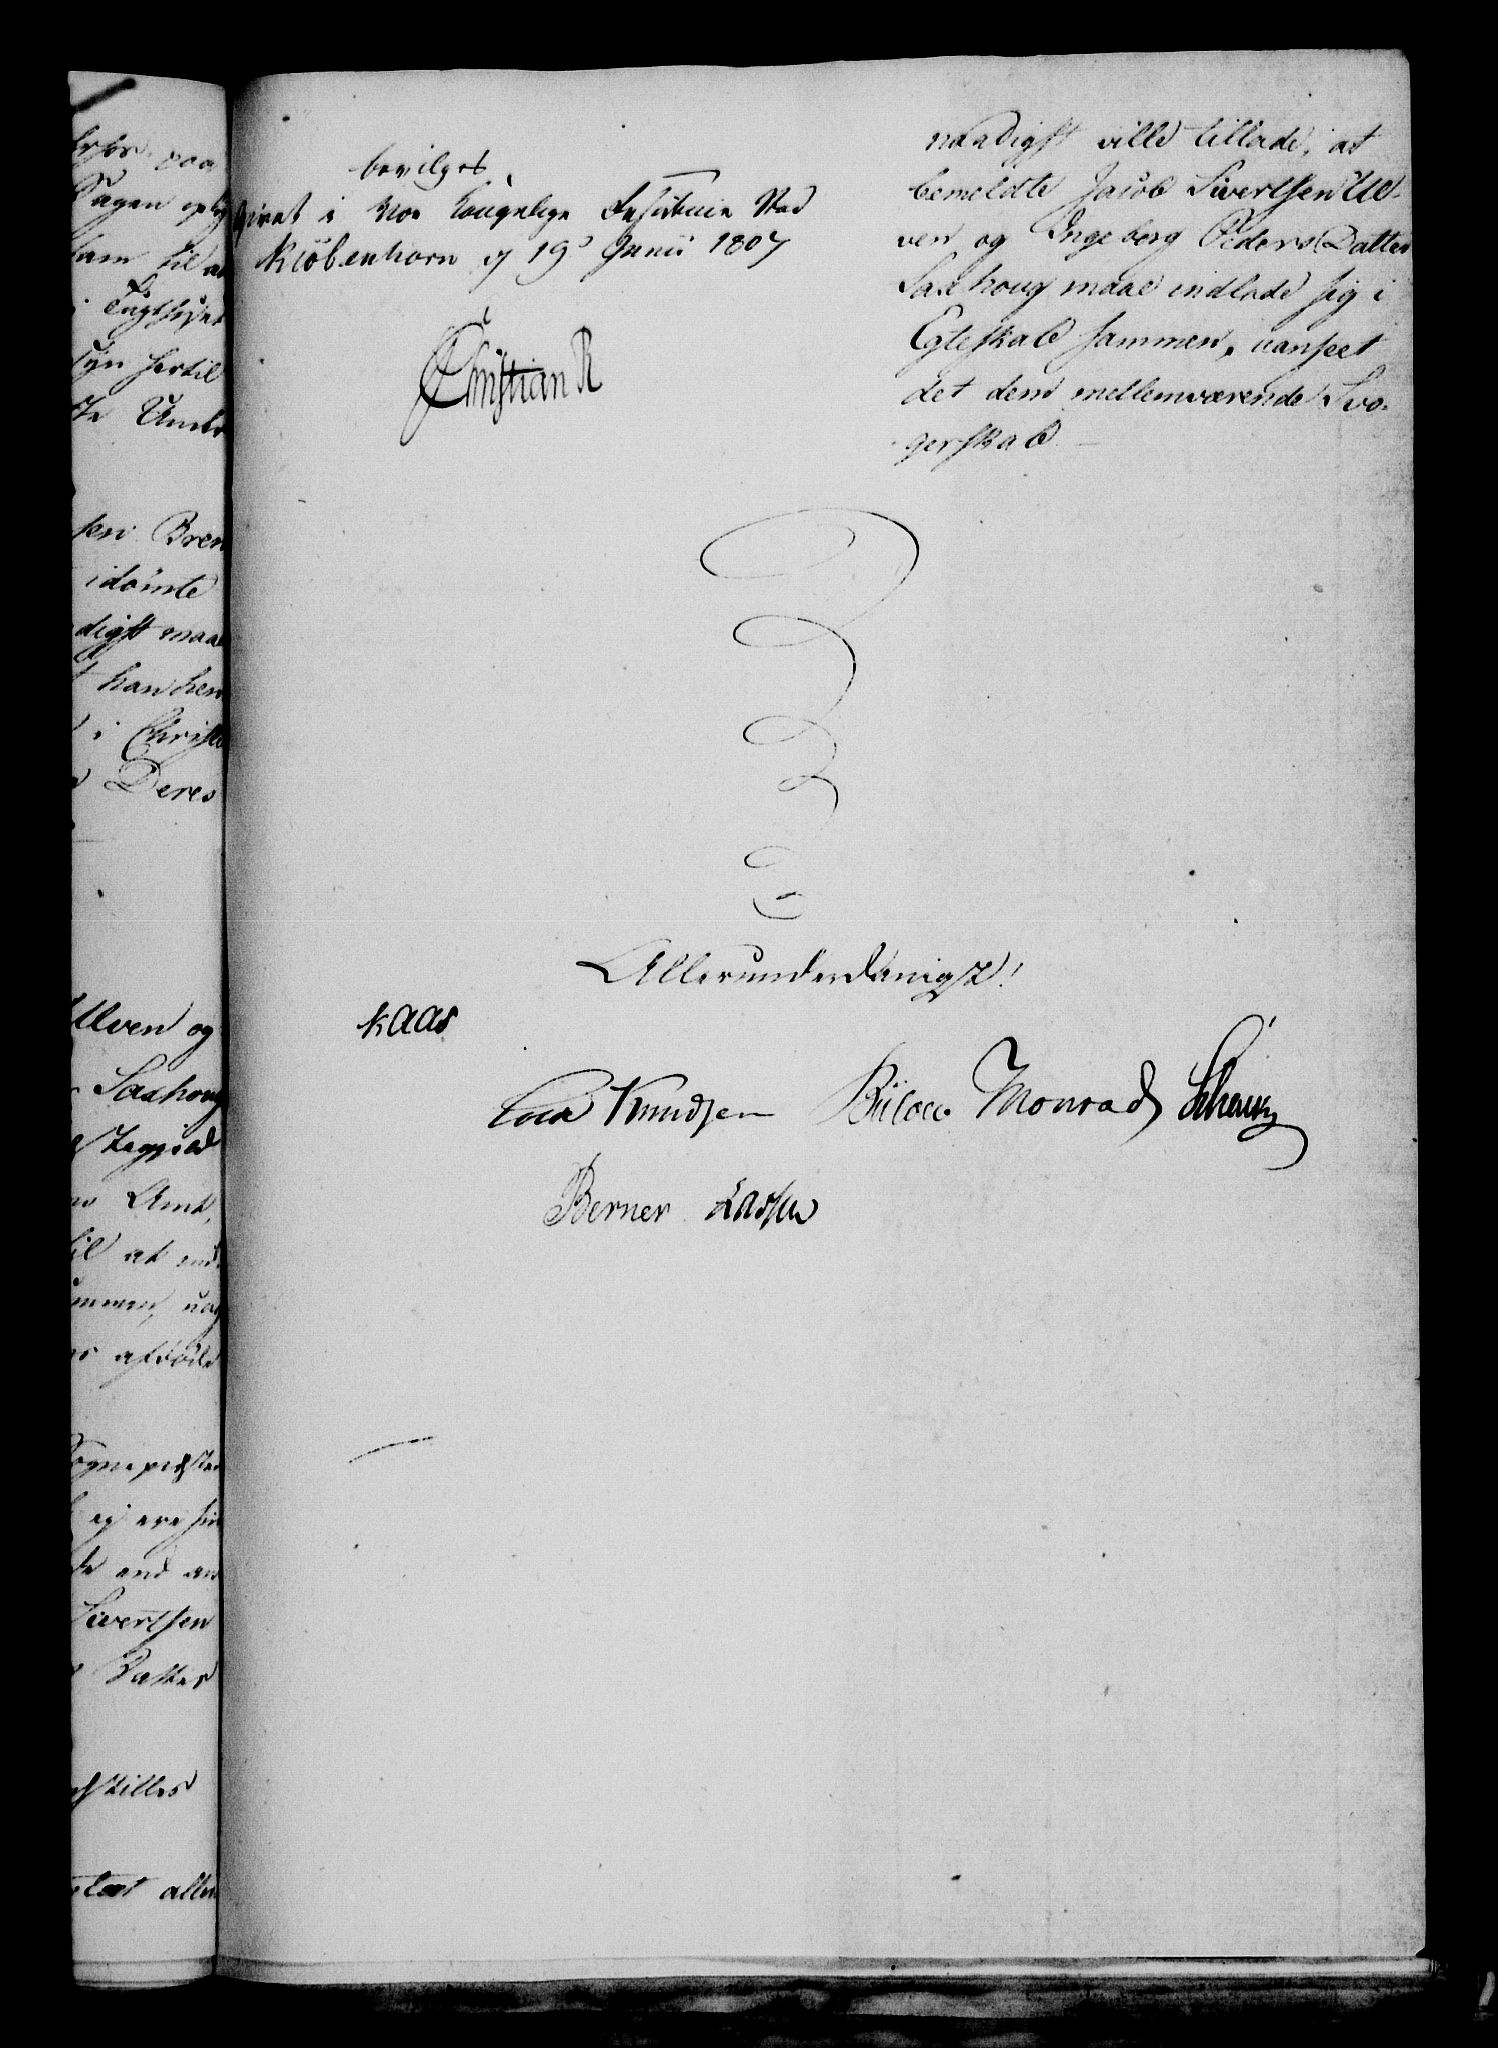 erfor paa
Sagen oply
ham til at
i Tugthuset
syn hertil
Umb
sen Bren
idömte
digst maa
han hen
i Christi
Deres
Ulven og
Saxhoug
Amt,
til at ind
ammen, uag
afdöde
Sognepræsten
ej ere
end an
Sivertsen
Datter
stilles
allen
bevilget.
Givet i Vor Kongelige Residence Stad
Kiöbenhavn d 19 Junii 1807
Christian R
naadigst ville tillade, at
bemeldte Jacob Sivertsen Ul-
ven og Ingeborg Peders Datter
Saxhoug maae indlade sig i
Egteskab sammen, uanseet
det dem mellemværende Svo-
gerskab
Allerunderdanigst!
Kaas
Cold Knudsen Bülow Monrad Schønning
Berner Lassen